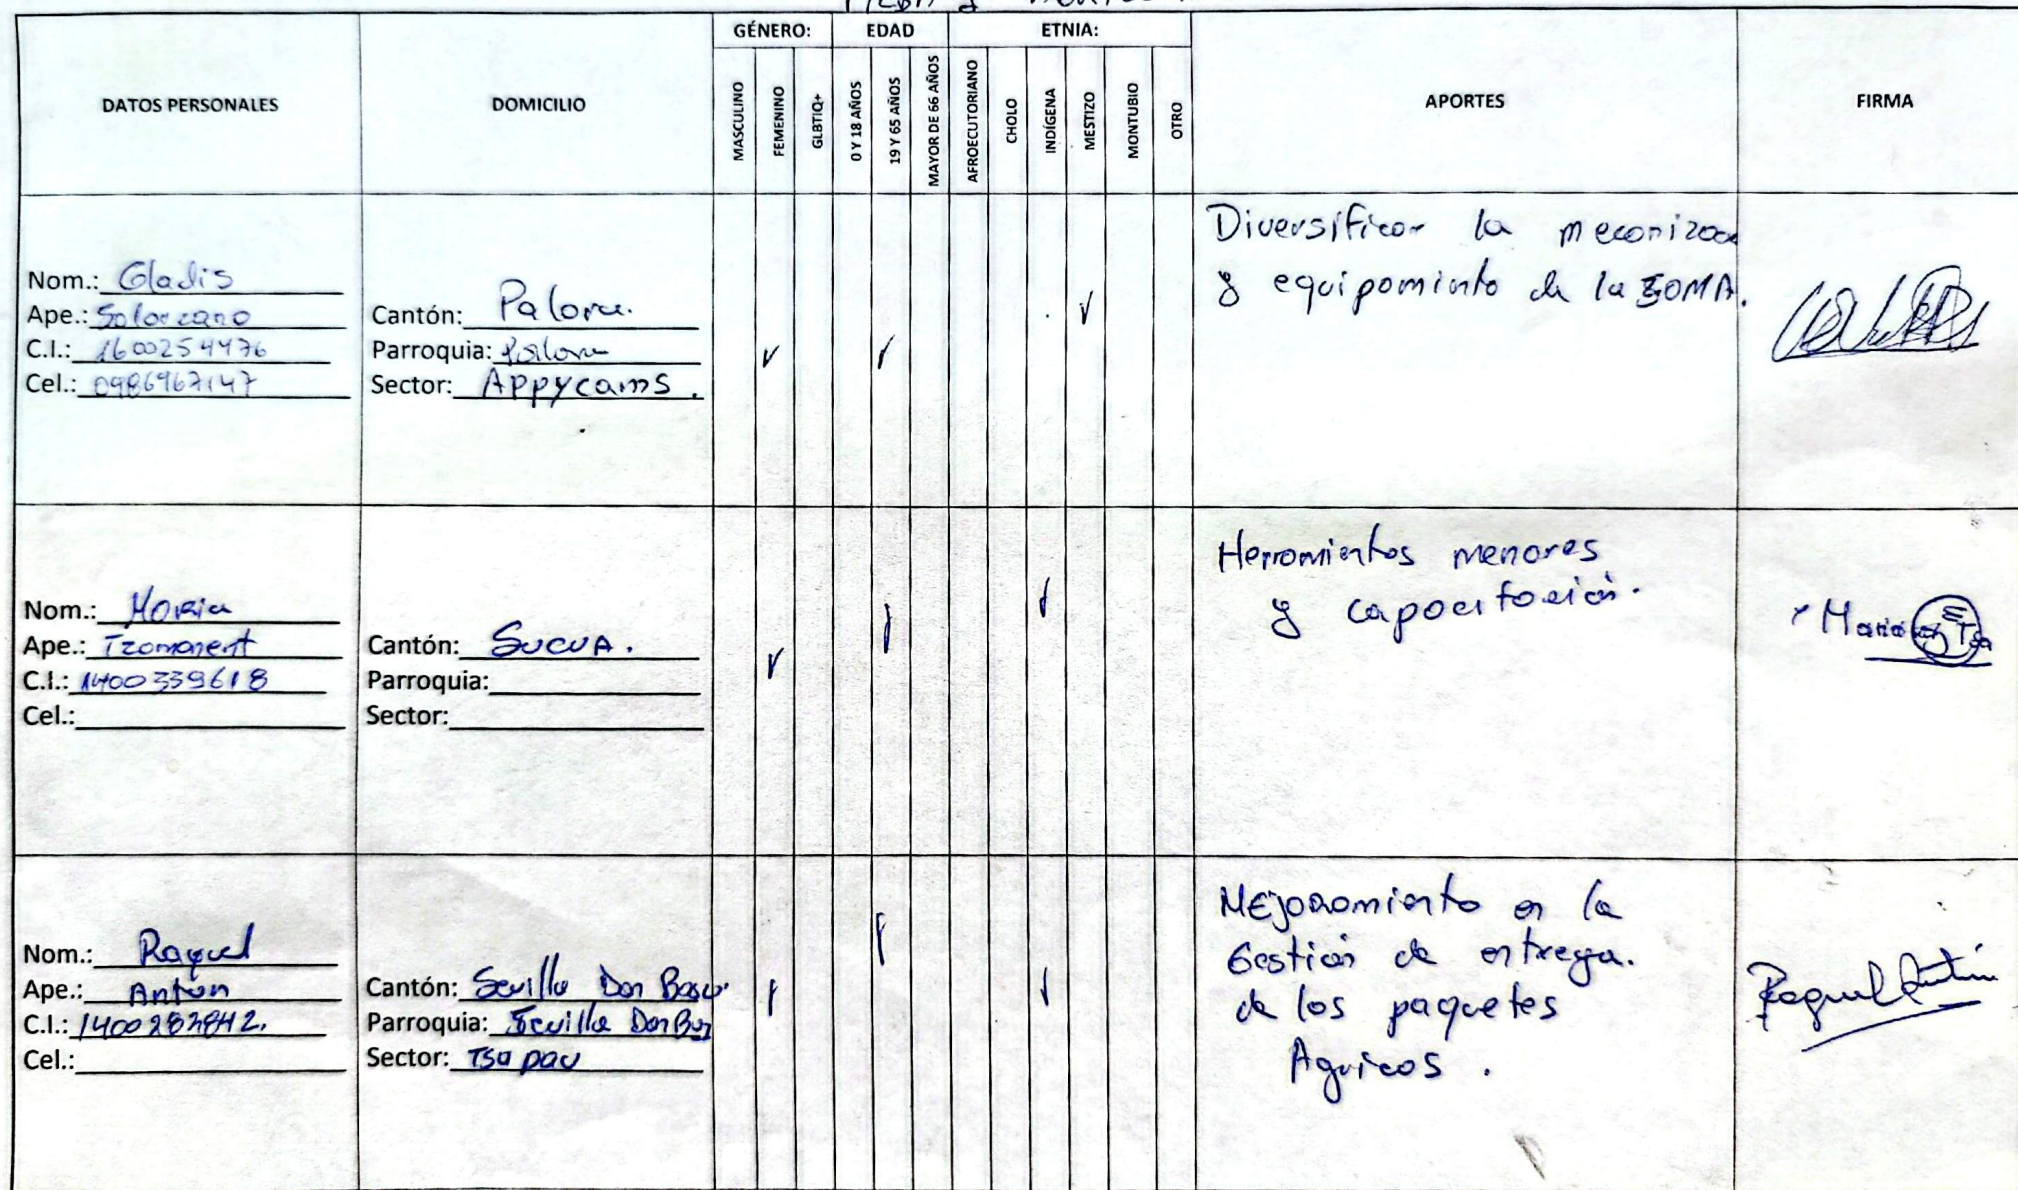 GÉNERO: EDAD ETNIA:
DATOS PERSONALES DOMICILIO MASCULINO FEMENINO GLBTIQ+ 0 Y 18 AÑOS 19 Y 65 AÑOS MAYOR DE 66 AÑOS AFROECUTORIANO CHOLO INDÍGENA MESTIZO MONTUBIO OTRO APORTES FIRMA
Nom.: Gladis
Ape.: Solorzano
C.I.: 1600254476
Cel.: 0986967147
Cantón: Palora.
Parroquia: Palora
Sector: Appycams.
Diversificar la mecanizac
y equipaminto de la
Nom.: Maria
Ape.:
C.I.: 1400339618
Cel.:
Cantón: SUCUA.
Parroquia:
Sector:
Herramientas menores
y capacitación.
Maria
Nom.: Raquel
Ape.: Antun
C.I.:
Cel.:
Cantón: Sevilla Don Bosco.
Parroquia: Sevilla Don Bos
Sector: Tsapau
Mejoramiento en la
Gestión de entrega.
de los paquetes
Agricos.
Raquel Antún